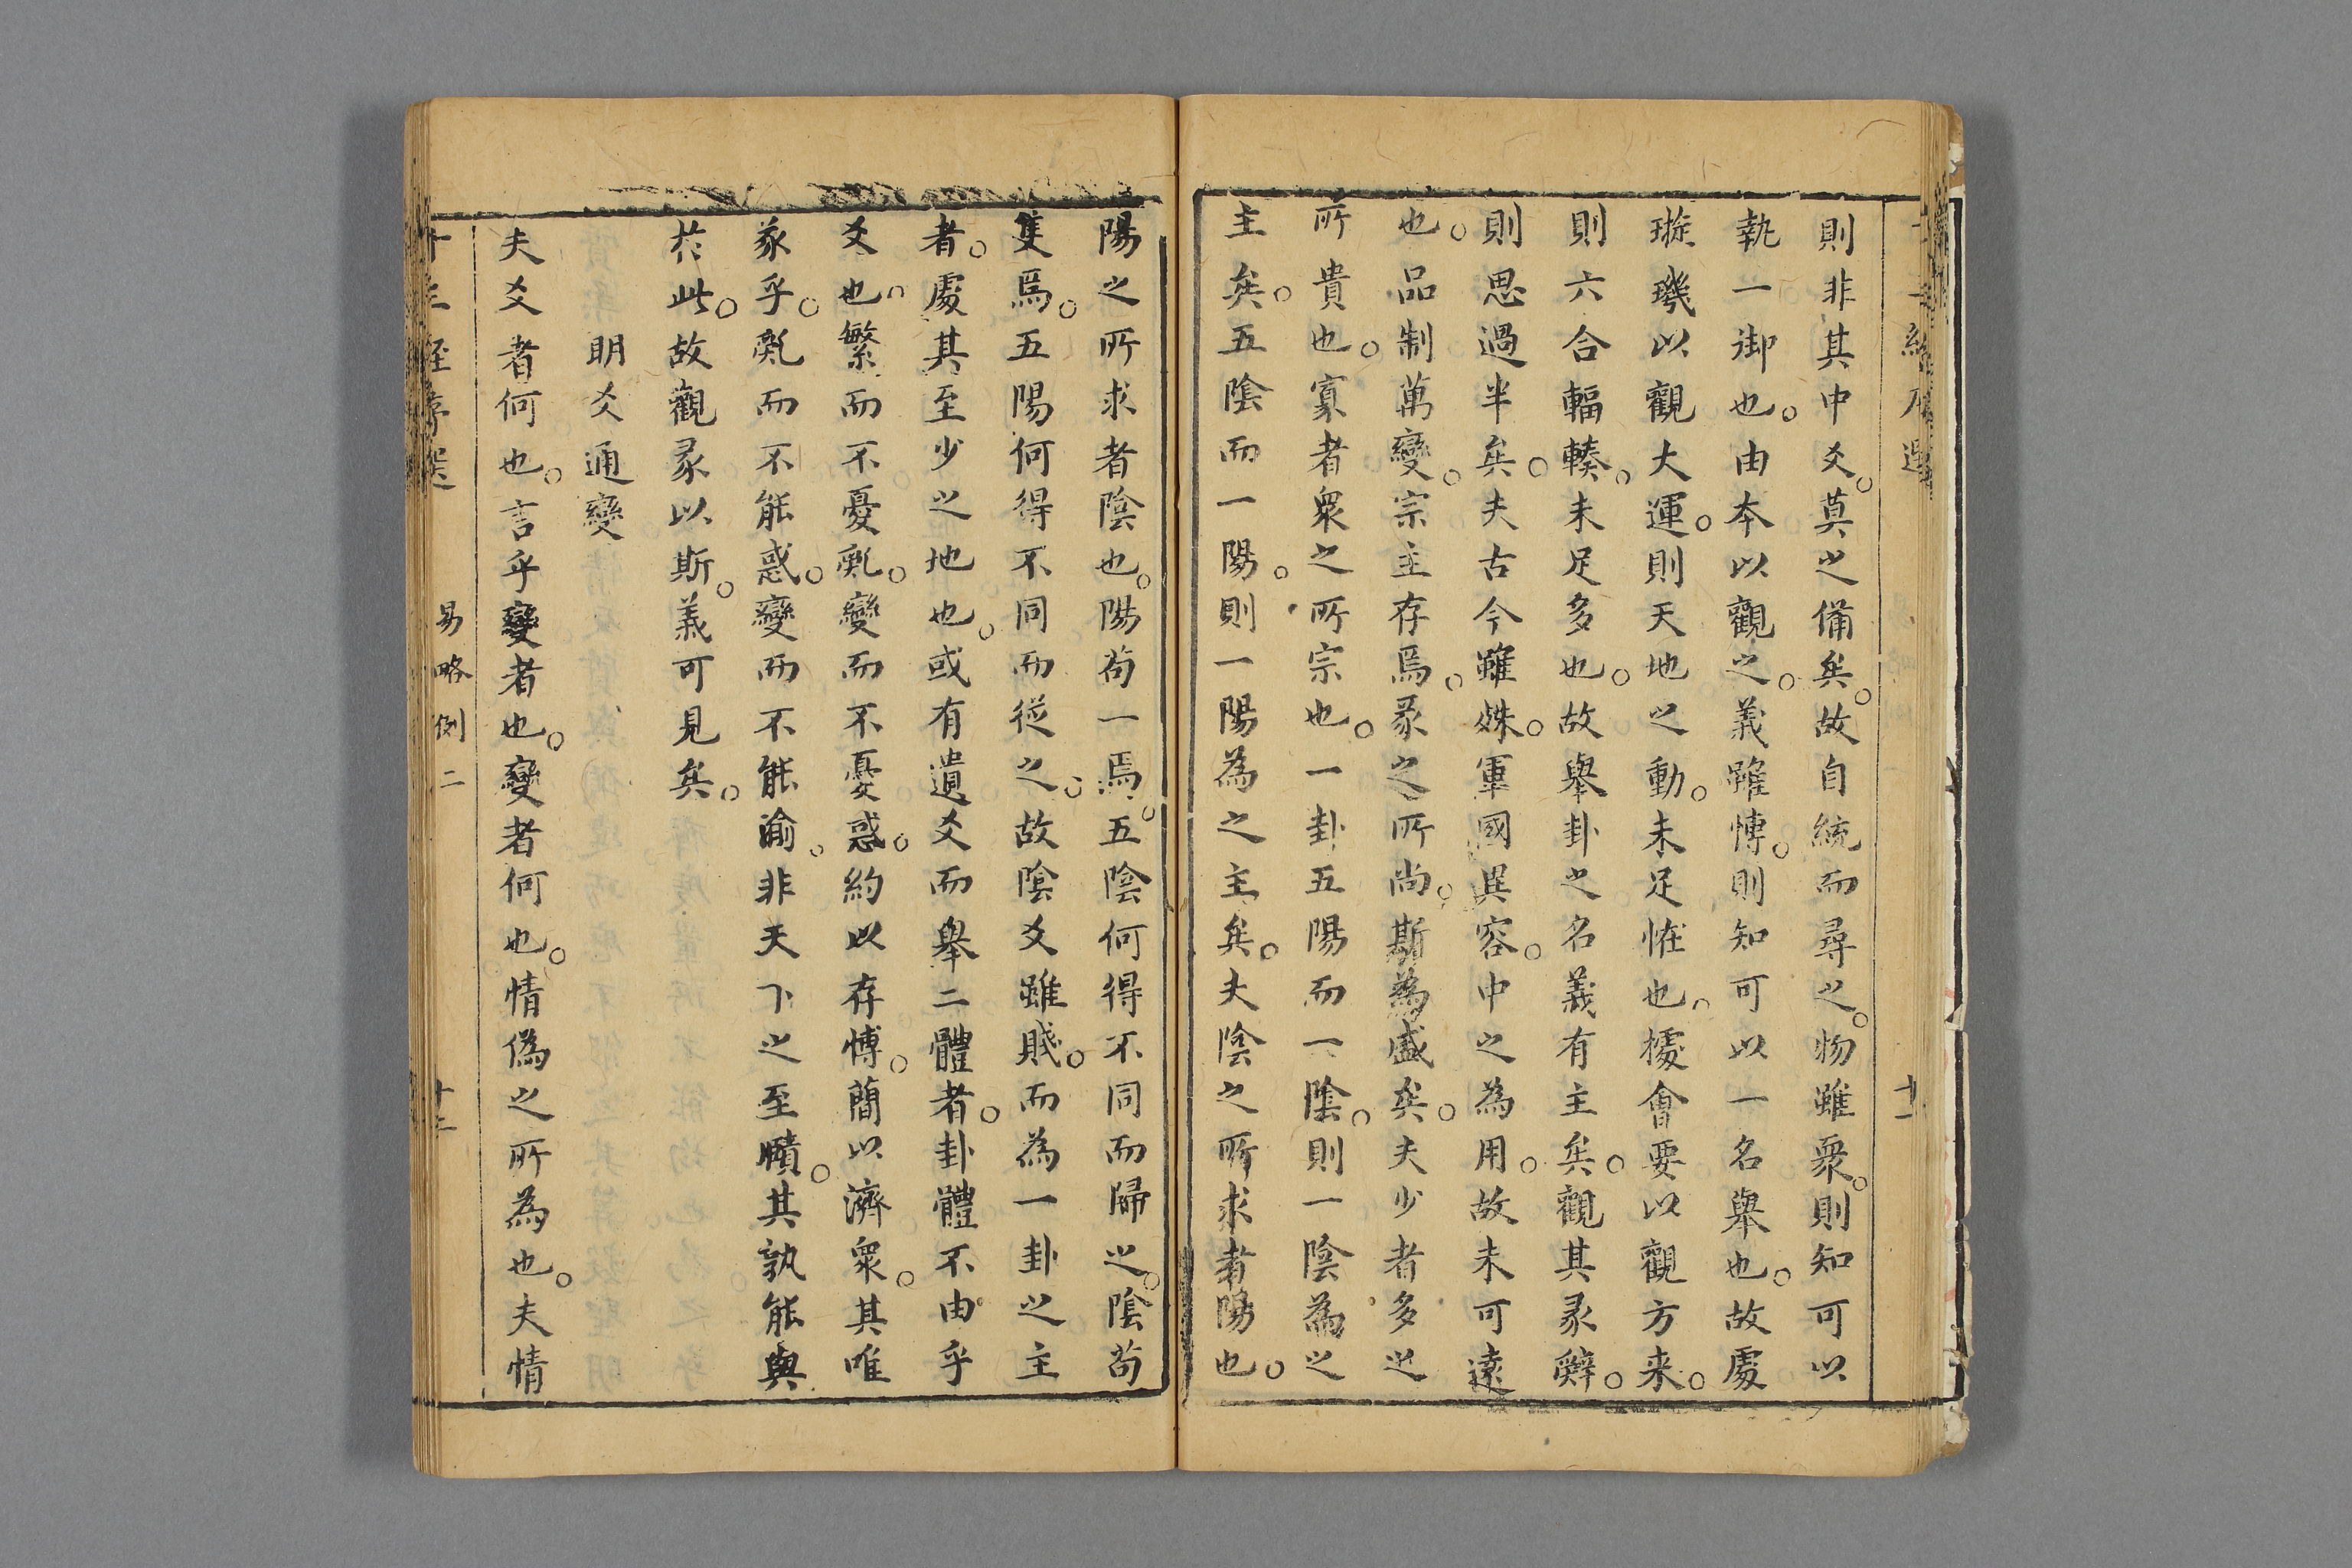 十三經序選
十一
則非其中爻。莫之備矣。故自統而尋之。物雖衆。則知可以
執一御也。由本以觀之。義雖博。則知可以一名舉也。故處
璇璣以觀大運。則天地之動。未足恠也。據會要以觀方来。
則六合輻輳。未足多也。故舉卦之名義有主矣。觀其彖辭。
則思過半矣。夫古今雖姝。軍國異容。中之為用。故未可遠
也。品制萬變。宗主存焉。彖之所尚。斯為盛矣。夫少者多之
所貴也。寡者衆之所宗也。一卦五陽而一陰。則一陰為之
主矣。五陰而一陽。則一陽為之主矣。夫陰之所求者陽也。
陽之所求者陰也。陽茍一焉。五陰何得不同而歸之。陰茍
隻焉。五陽何得不同而從之。故陰爻雖賤。而為一卦之主
者。處其至少之地也。或有遺爻而舉二體者。卦體不由乎
爻也。繁而不憂亂。變而不憂惑。約以存博。簡以濟衆。其唯
彖乎。亂而不能惑。變而不能渝。非天下之至賾。其孰能與
於此。故觀彖以斯。義可見矣。
明爻通變
夫爻者何也。言乎變者也。變者何也。情偽之所為也。夫情
十三經序選
易略例二
十二